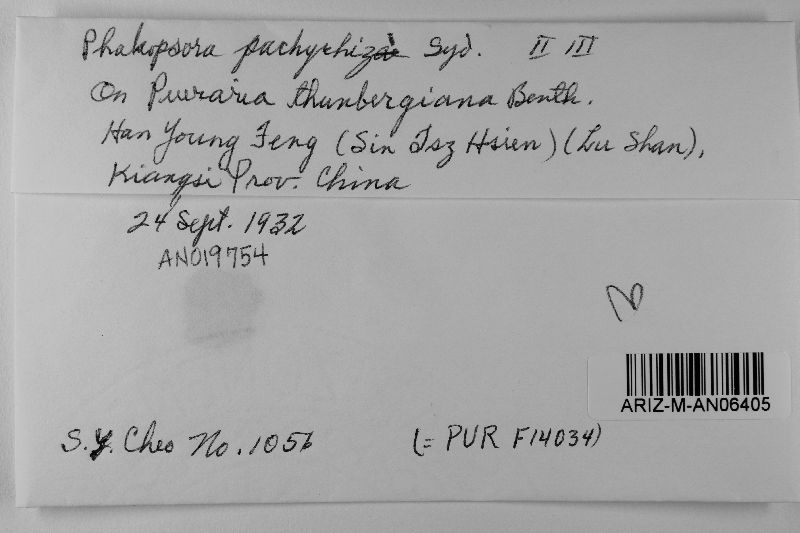 Phakopsora pachyrhizae Syd. II III
On Pueraria thunbergiana Benth.
Han Young Feng (Sin Tsz Hsien) (Lu Shan),
Kiangsi Prov. China
24 Sept. 1932
AN019754
ARIZ-M-AN06405
S.Y. Cheo No. 1056 (= PUR F14034)